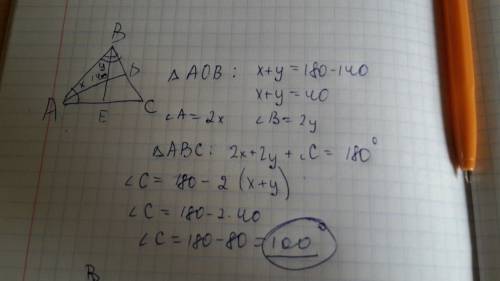 B
x 140 y D
A E C
△AOB: x+y = 180-140
x+y = 40
∠A = 2x ∠B = 2y
△ABC: 2x+2y+∠C = 180°
∠C = 180 - 2 (x+y)
∠C = 180-2·40
∠C = 180-80 = 100°
B